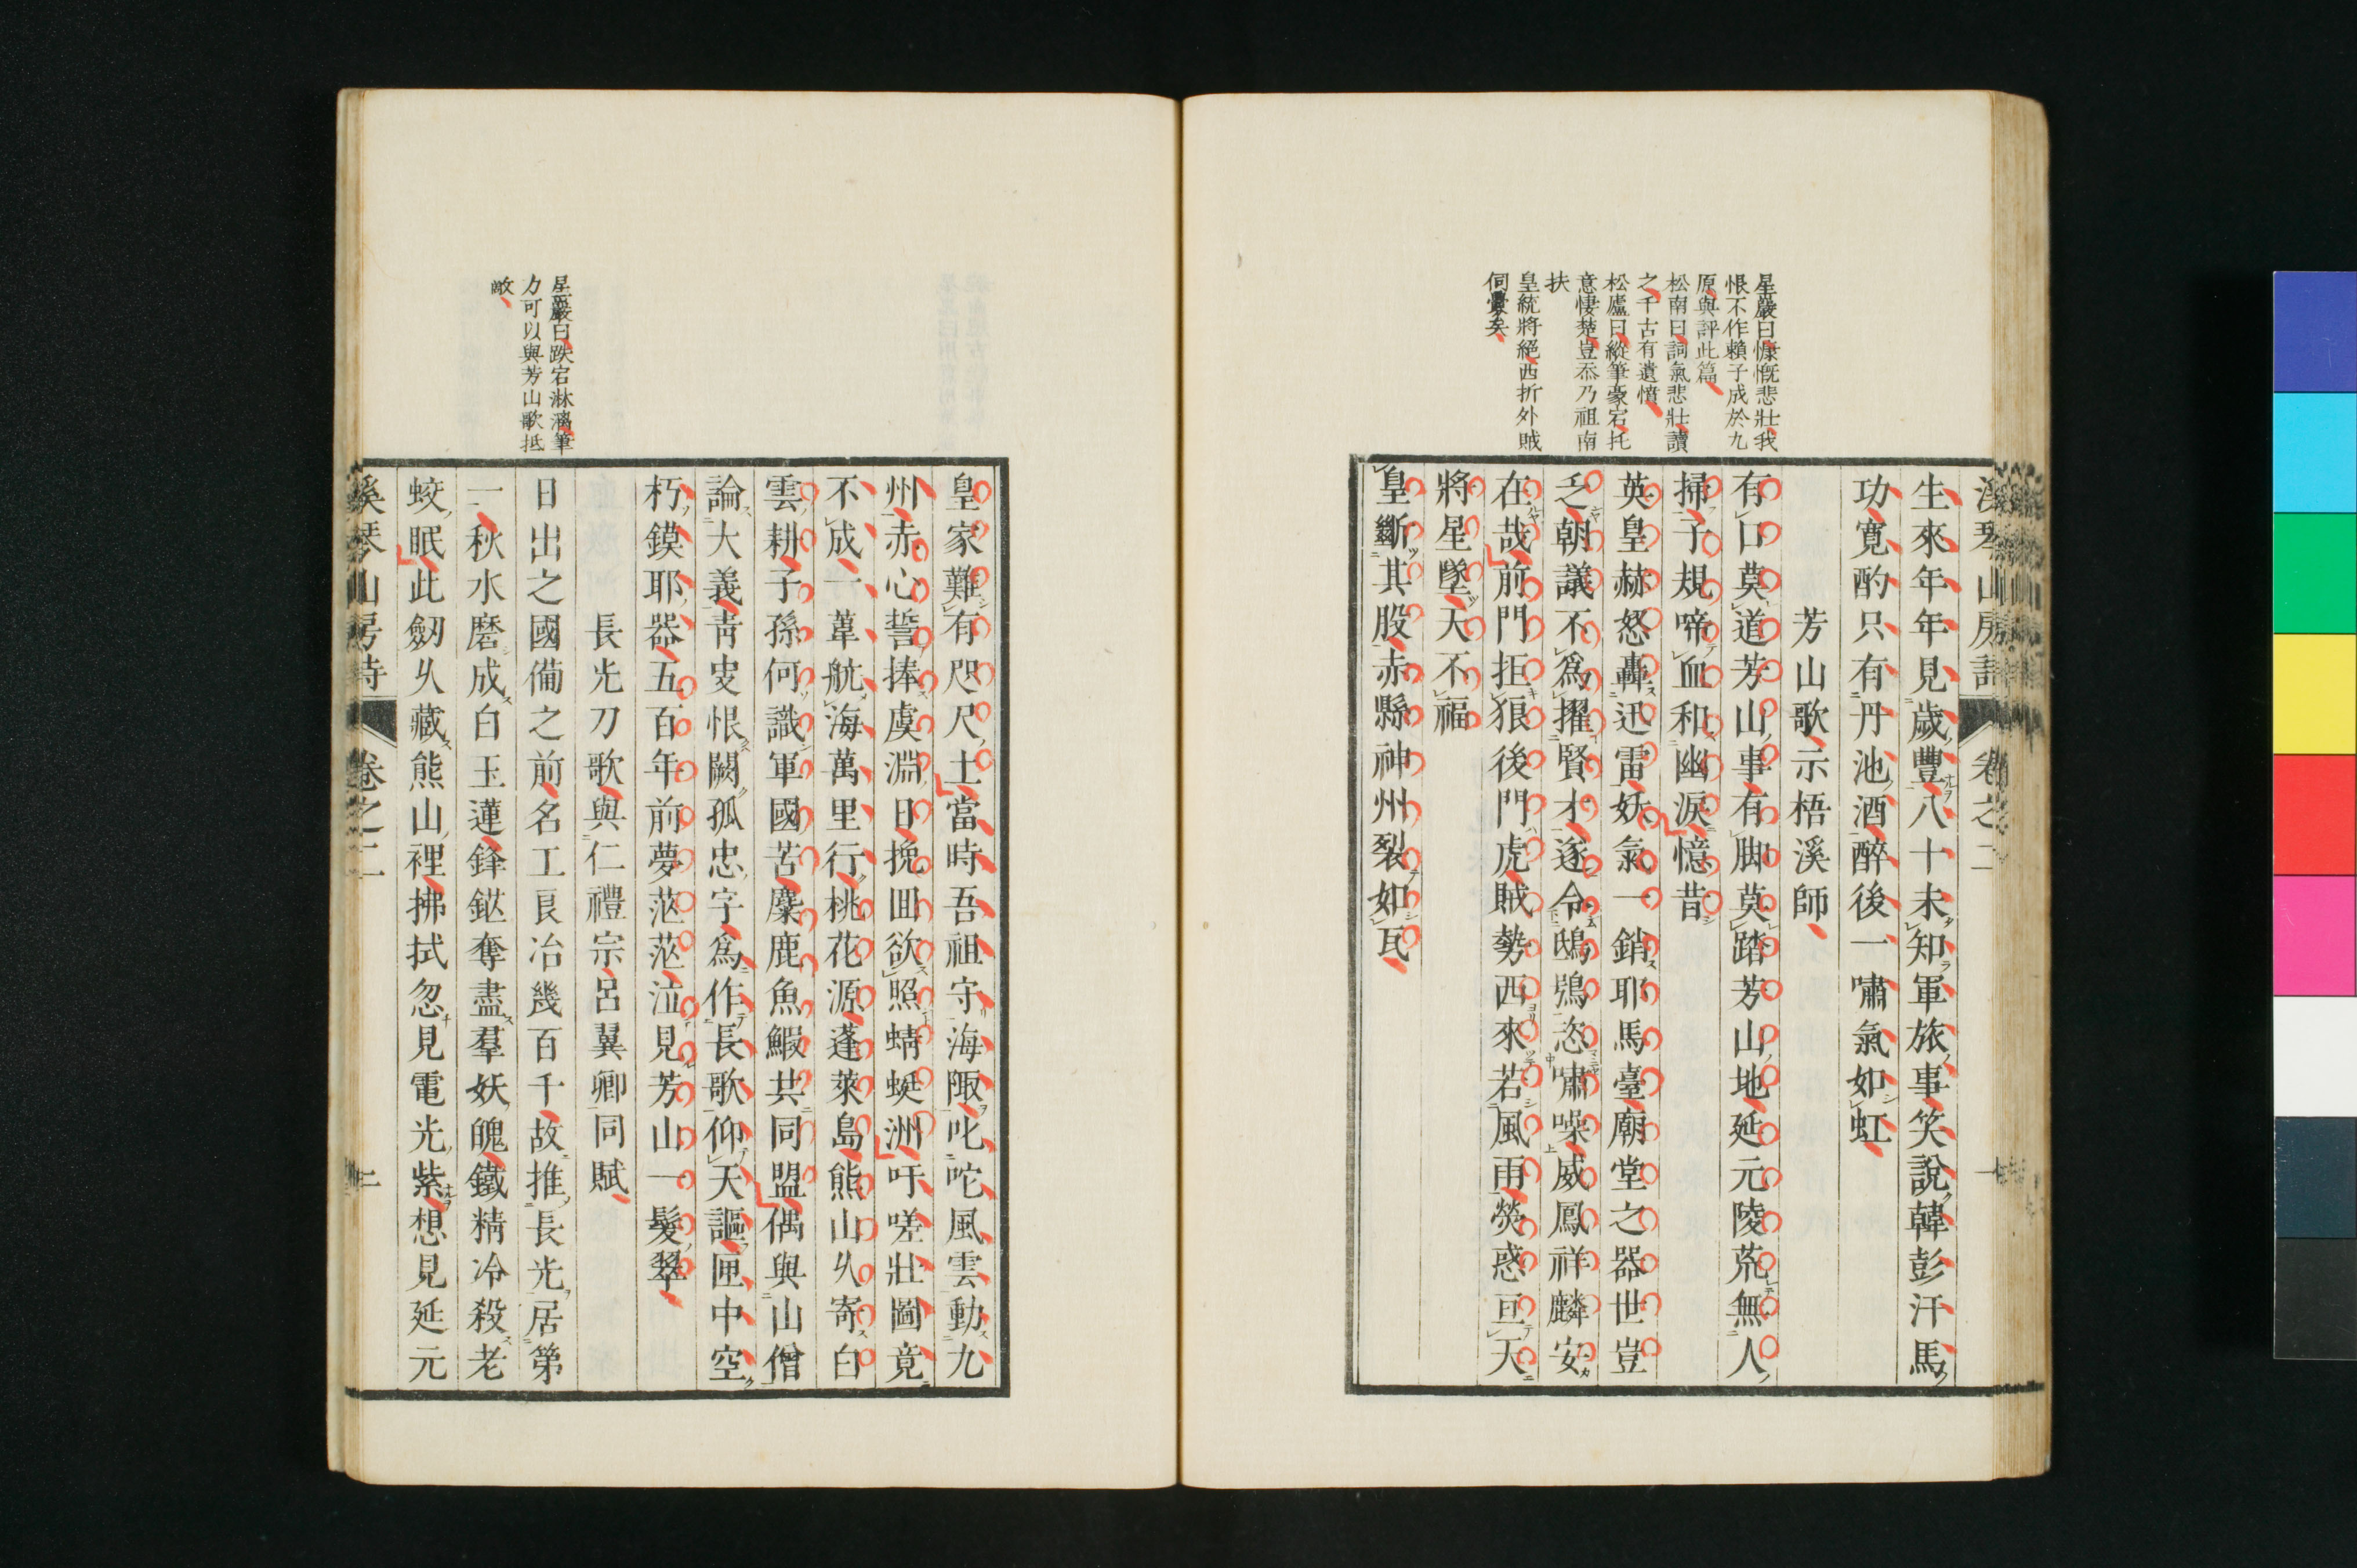 星巖曰慷慨悲壯我
恨不作賴子成於九
原與評此篇
松南曰詞氣悲壯讀
之千古有遺憤
松廬曰縱筆豪宕托
意悽楚豈忝乃祖南
扶
皇統將絕西折外賊
伺釁矣
溪琴山房詩 卷之二
生來年年見歲豐八十未知軍旅事笑說韓彭汗馬
功寬酌只有丹池酒醉後一嘯氣如虹
芳山歌示梧溪師
有口莫道芳山事有脚莫踏芳山地延元陵荒無人
掃子規啼血和幽淚憶昔
英皇赫怒轟迅雷妖氣一銷耶馬臺廟堂之器世豈
乏朝議不爲擢賢才遂令鴟鴞恣嘯噪威鳳祥麟安
在哉前門拒狼後門虎賊勢西來若風雨熒惑亘天
將星墜天不福
皇斷其股赤縣神州裂如瓦
皇家難有咫尺士當時吾祖守海陬叱咤風雲動九
州赤心誓捧虞淵日挽回欲照蜻蜓洲吁嗟壯圖竟
不成一葦航海萬里行桃花源蓬萊島熊山乆寄白
雲耕子孫何識軍國苦麋鹿魚鰕共同盟偶與山僧
論大義靑叟恨闕孤忠字爲作長歌仰天謳匣中空
朽鏌耶器五百年前夢茫茫泣見芳山一髮翠
長光刀歌與仁禮宗呂翼卿同賦
日出之國備之前名工良冶幾百千故推長光居第
一秋水磨成白玉蓮鋒鋩奪盡羣妖魄鐵精冷殺老
蛟眠此劒乆藏熊山裡拂拭忽見電光紫想見延元
星巖曰跌宕淋漓筆
力可以與芳山歌抵
敵
溪琴山房詩 卷之二 二